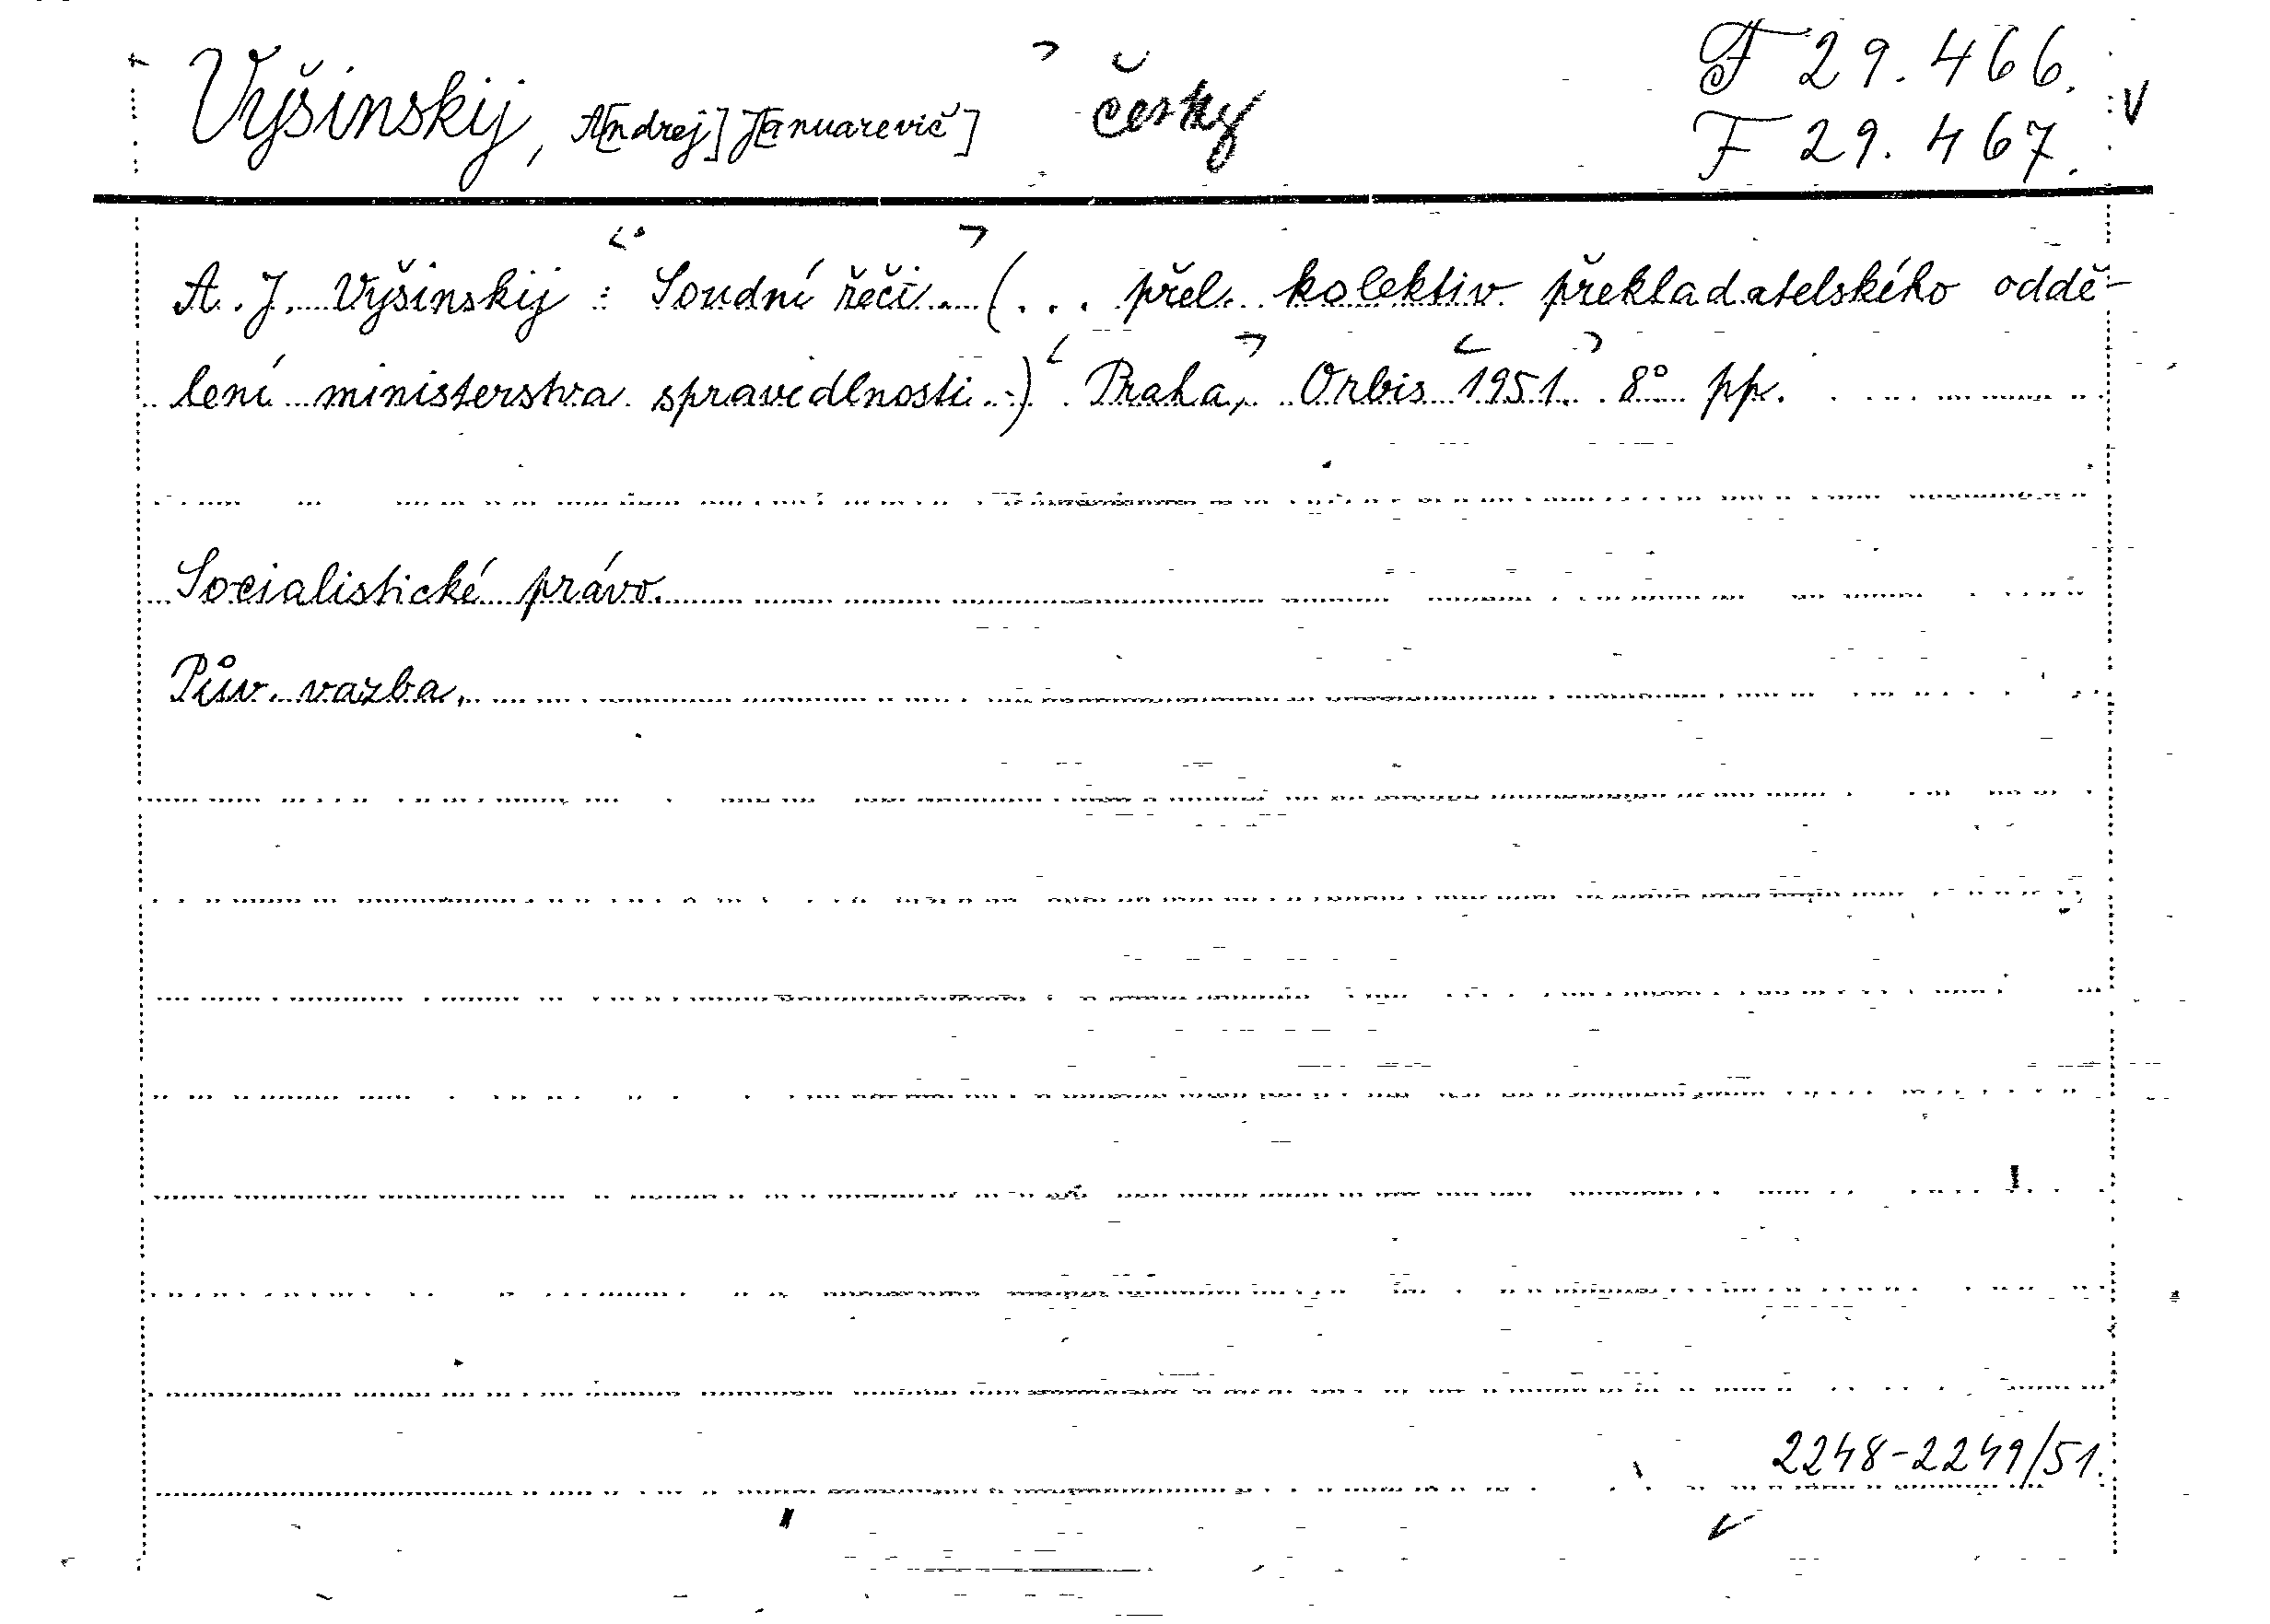 Vyšinskij, A[ndrej] J[anuarevič] česky F 29.466.
F 29.467.
A. J. Vyšinskij : Soudní řeči. (... přel. kolektiv překladatelského oddě-
lení ministerstva spravedlnosti.) Praha, Orbis 1951. 8° pp.
Socialistické právo.
Pův. vazba.
2248-2249/51.